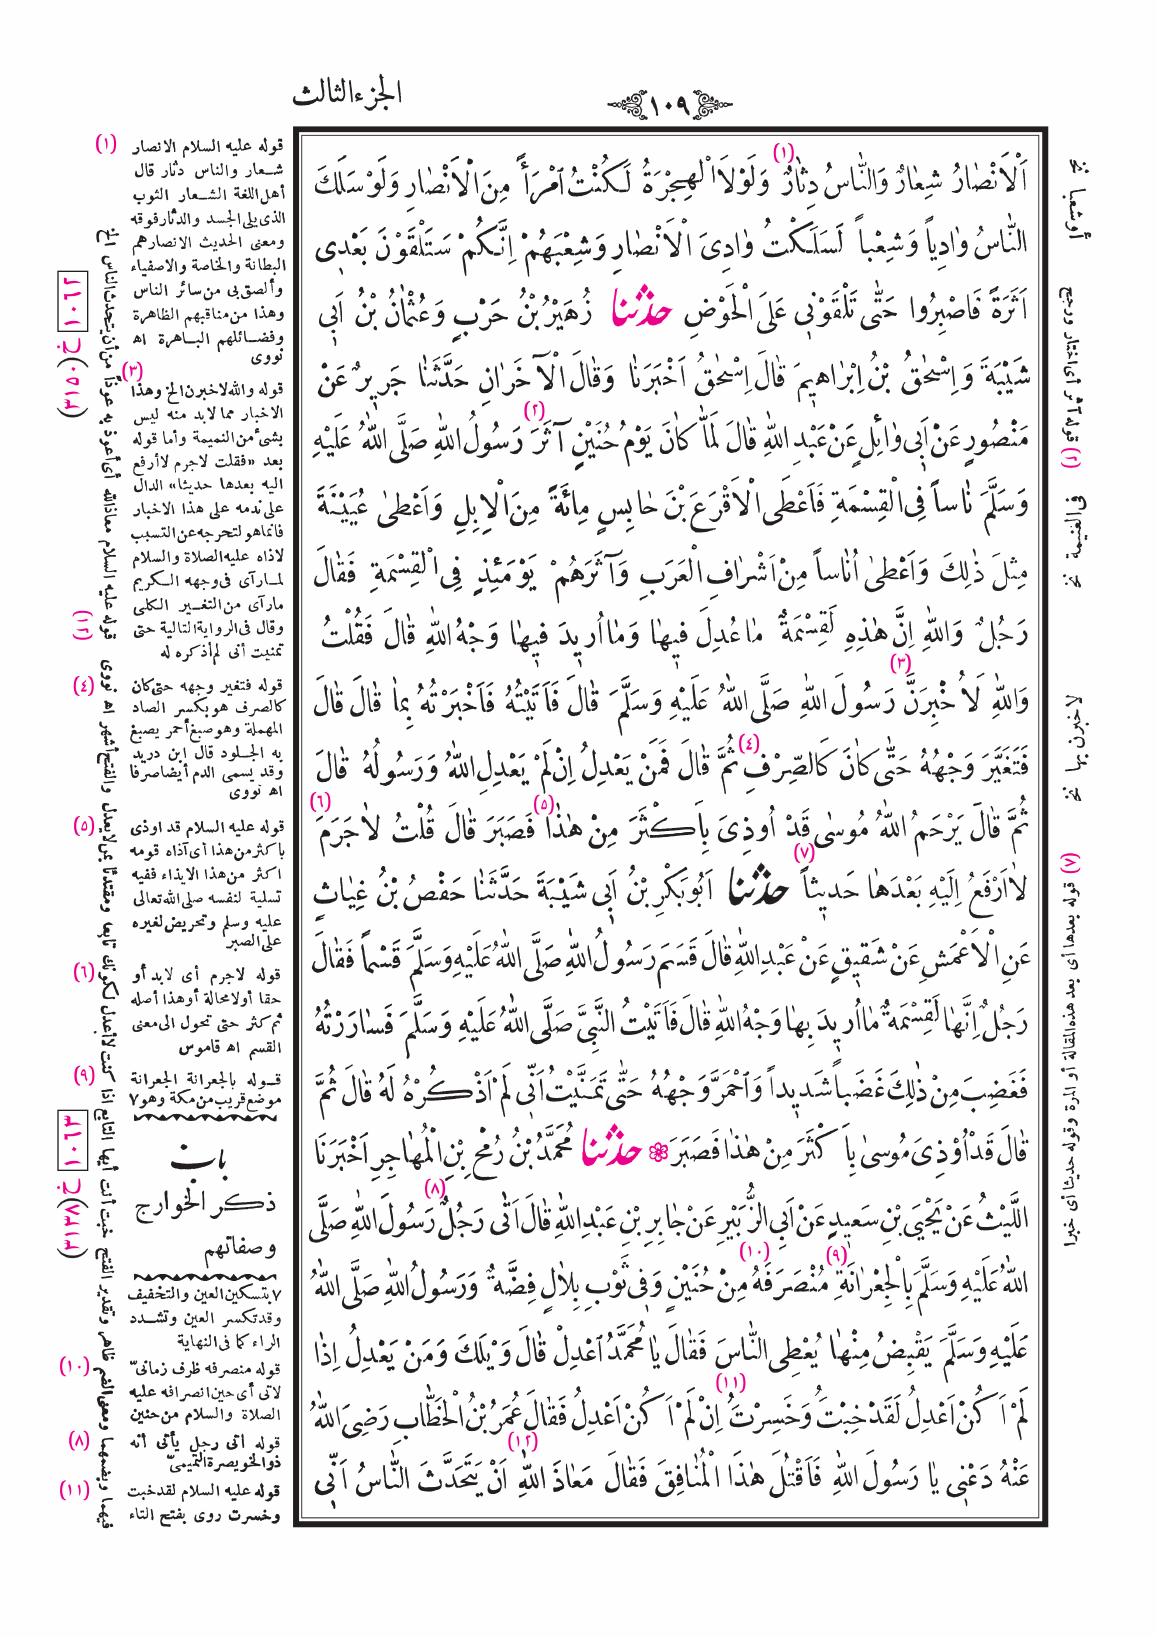 الجزء الثالث
١٠٩
اَلْاَنْصَارُ شِعَارٌ وَالنَّاسُ دِثَارٌ (١) وَلَوْلَا الْهِجْرَةُ لَكُنْتُ امْرَأً مِنَ الْاَنْصَارِ وَلَوْ سَلَكَ
النَّاسُ وَادِياً وَشِعْباً لَسَلَكْتُ وَادِىَ الْاَنْصَارِ وَشِعْبَهُمْ اِنَّكُمْ سَتَلْقَوْنَ بَعْدِى
اَثَرَةً فَاصْبِرُوا حَتّٰى تَلْقَوْنِى عَلَى الْحَوْضِ حدثنا زُهَيْرُ بْنُ حَرْبٍ وَعُثْمَانُ بْنُ اَبِى
شَيْبَةَ وَاِسْحٰقُ بْنُ اِبْرَاهِيمَ قَالَ اِسْحٰقُ اَخْبَرَنَا وَقَالَ الْآخَرَانِ حَدَّثَنَا جَرِيرٌ عَنْ
مَنْصُورٍ عَنْ اَبِى وَائِلٍ عَنْ عَبْدِ اللّٰهِ قَالَ لَمَّا كَانَ يَوْمُ حُنَيْنٍ آثَرَ (٢) رَسُولُ اللّٰهِ صَلَّى اللّٰهُ عَلَيْهِ
وَسَلَّمَ نَاساً فِى الْقِسْمَةِ فَاَعْطَى الْاَقْرَعَ بْنَ حَابِسٍ مِائَةً مِنَ الْاِبِلِ وَاَعْطٰى عُيَيْنَةَ
مِثْلَ ذٰلِكَ وَاَعْطٰى اُنَاساً مِنْ اَشْرَافِ الْعَرَبِ وَآثَرَهُمْ يَوْمَئِذٍ فِى الْقِسْمَةِ فَقَالَ
رَجُلٌ وَاللّٰهِ اِنَّ هٰذِهِ لَقِسْمَةٌ مَا عُدِلَ فِيهَا وَمَا اُرِيدَ فِيهَا وَجْهُ اللّٰهِ قَالَ فَقُلْتُ
وَاللّٰهِ لَاُخْبِرَنَّ (٣) رَسُولَ اللّٰهِ صَلَّى اللّٰهُ عَلَيْهِ وَسَلَّمَ قَالَ فَاَتَيْتُهُ فَاَخْبَرْتُهُ بِمَا قَالَ قَالَ
فَتَغَيَّرَ وَجْهُهُ حَتّٰى كَانَ كَالصِّرْفِ (٤) ثُمَّ قَالَ فَمَنْ يَعْدِلُ اِنْ لَمْ يَعْدِلِ اللّٰهُ وَرَسُولُهُ قَالَ
ثُمَّ قَالَ يَرْحَمُ اللّٰهُ مُوسٰى قَدْ اُوذِىَ بِاَكْثَرَ مِنْ هٰذَا (٥) فَصَبَرَ قَالَ قُلْتُ لَاجَرَمَ (٦)
لَا اَرْفَعُ اِلَيْهِ بَعْدَهَا حَدِيثاً (٧) حدثنا اَبُوبَكْرِ بْنُ اَبِى شَيْبَةَ حَدَّثَنَا حَفْصُ بْنُ غِيَاثٍ
عَنِ الْاَعْمَشِ عَنْ شَقِيقٍ عَنْ عَبْدِ اللّٰهِ قَالَ قَسَمَ رَسُولُ اللّٰهِ صَلَّى اللّٰهُ عَلَيْهِ وَسَلَّمَ قَسْماً فَقَالَ
رَجُلٌ اِنَّهَا لَقِسْمَةٌ مَا اُرِيدَ بِهَا وَجْهُ اللّٰهِ قَالَ فَاَتَيْتُ النَّبِىَّ صَلَّى اللّٰهُ عَلَيْهِ وَسَلَّمَ فَسَارَرْتُهُ
فَغَضِبَ مِنْ ذٰلِكَ غَضَباً شَدِيداً وَاحْمَرَّ وَجْهُهُ حَتّٰى تَمَنَّيْتُ اَنِّى لَمْ اَذْكُرْهُ لَهُ قَالَ ثُمَّ
قَالَ قَدْ اُوْذِىَ مُوسٰى بِاَكْثَرَ مِنْ هٰذَا فَصَبَرَ حدثنا مُحَمَّدُ بْنُ رُمْحِ بْنِ الْمُهَاجِرِ اَخْبَرَنَا
اللَّيْثُ عَنْ يَحْيَى بْنِ سَعِيدٍ عَنْ اَبِى الزُّبَيْرِ عَنْ جَابِرِ بْنِ عَبْدِ اللّٰهِ قَالَ اَتٰى رَجُلٌ (٨) رَسُولَ اللّٰهِ صَلَّى
اللّٰهُ عَلَيْهِ وَسَلَّمَ بِالْجِعْرَانَةِ (٩) مُنْصَرَفَهُ (١٠) مِنْ حُنَيْنٍ وَفِى ثَوْبِ بِلَالٍ فِضَّةٌ وَرَسُولُ اللّٰهِ صَلَّى اللّٰهُ
عَلَيْهِ وَسَلَّمَ يَقْبِضُ مِنْهَا يُعْطِى النَّاسَ فَقَالَ يَا مُحَمَّدُ اعْدِلْ قَالَ وَيْلَكَ وَمَنْ يَعْدِلُ اِذَا
لَمْ اَكُنْ اَعْدِلُ لَقَدْ خِبْتَ وَخَسِرْتَ (١١) اِنْ لَمْ اَكُنْ اَعْدِلُ فَقَالَ عُمَرُ بْنُ الْخَطَّابِ رَضِىَ اللّٰهُ
عَنْهُ دَعْنِى يَا رَسُولَ اللّٰهِ فَاَقْتُلَ هٰذَا الْمُنَافِقَ فَقَالَ مَعَاذَ اللّٰهِ (١٢) اَنْ يَتَحَدَّثَ النَّاسُ اَنِّى
أوشعبا نخ
(٢) قوله آثر أى اختار ورجح
فى الغنيمة نخ
لاخبرن بها نخ
(٧) قوله بعدها أى بعد هذه المقالة أو المرة وقوله حديثا أى خبرا
(١) قوله عليه السلام الانصار
شعار والناس دثار قال
أهل اللغة الشعار الثوب
الذى يلى الجسد والدثار فوقه
ومعنى الحديث الانصار هم
البطانة والخاصة والاصفياء
وألصق بى من سائر الناس
وهذا من مناقبهم الظاهرة
وفضائلهم الباهرة اه
نووى
(٣) قوله والله لاخبرن الخ وهذا
الاخبار مما لابد منه ليس
بشئ من النميمة وأما قوله
بعد «فقلت لاجرم لا أرفع
اليه بعدها حديثا» الدال
على ندمه على هذا الاخبار
فانما هو لتحرجه عن التسبب
لاذاه عليه الصلاة والسلام
لما رآى فى وجهه الكريم
ما رآى من التغير الكلى
وقال فى الرواية التالية حتى
تمنيت أنى لم أذكره له
(٤) قوله فتغير وجهه حتى كان
كالصرف هو بكسر الصاد
المهملة وهو صبغ أحمر يصبغ
به الجلود قال ابن دريد
وقد يسمى الدم أيضا صرفا
اه نووى
(٥) قوله عليه السلام قد اوذى
باكثر من هذا أى آذاه قومه
اكثر من هذا الايذاء ففيه
تسلية لنفسه صلى الله تعالى
عليه وسلم وتحريض لغيره
على الصبر
(٦) قوله لاجرم أى لابد أو
حقا أو لا محالة أو هذا أصله
ثم كثر حتى تحول الى معنى
القسم اه قاموس
(٩) قوله بالجعرانة الجعرانة
موضع قريب من مكة وهو ٧
باب
ذكر الخوارج
وصفاتهم
٧ بتسكين العين والتخفيف
وقد تكسر العين وتشدد
الراء كما فى النهاية
(١٠) قوله منصرفه ظرف زمانى
لاتى أى حين انصرافه عليه
الصلاة والسلام من حنين
(٨) قوله اتى رجل يأتى أنه
ذو الخويصرة التميمى
(١١) قوله عليه السلام لقد خبت
وخسرت روى بفتح التاء
فيهما وبضمهما ومعنى الضم ظاهر وتقدير الفتح خبت أنت أيها التابع اذا كنت لا أعدل لكونك تابعا ومقتديا بمن لا يعدل والفتح أشهر اه نووى
(١٢) قوله عليه السلام معاذ الله أى أعوذ به عوذا من أن يتحدث الناس الخ